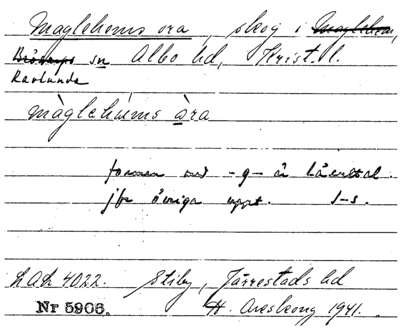 Maglehems ora, skog i Maglehem,
Brösarps sn Albo hd, Krist. l.
Ravlunda
màglehúms àra
formen med -g- är lånettal
jfr övriga uppt. I-s.
LAL 4022. Stiby, Järrestads hd
Nr 5906. H. Areskoug 1941.